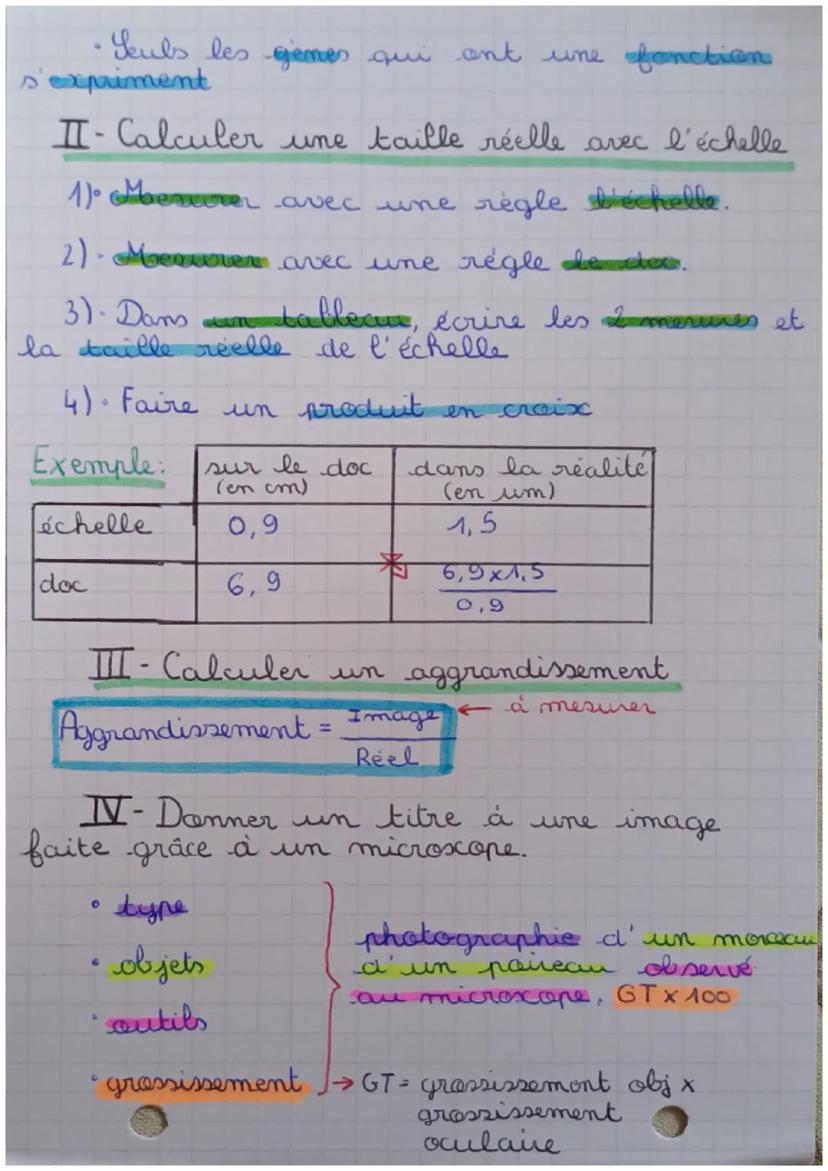 • Seuls les gènes qui ont une fonction
s'expriment
II - Calculer une taille réelle avec l'échelle
1)• Mesurer avec une règle l'échelle.
2)• Mesurer avec une règle le doc.
3)• Dans un tableau, écrire les 2 mesures et
la taille réelle de l'échelle
4)• Faire un produit en croix
Exemple: sur le doc dans la réalité
(en cm) (en um)
échelle 0,9 1,5
doc 6,9 6,9x1,5
0,9
III - Calculer un aggrandissement
Aggrandissement = Image ← à mesurer
Réel
IV - Donner un titre à une image
faite grâce à un microscope.
• type
photographie d'un morceau
• objets d'un poireau observé
au microscope. GT x 100
• outils
• grossissement → GT = grossissement obj x
grossissement
oculaire